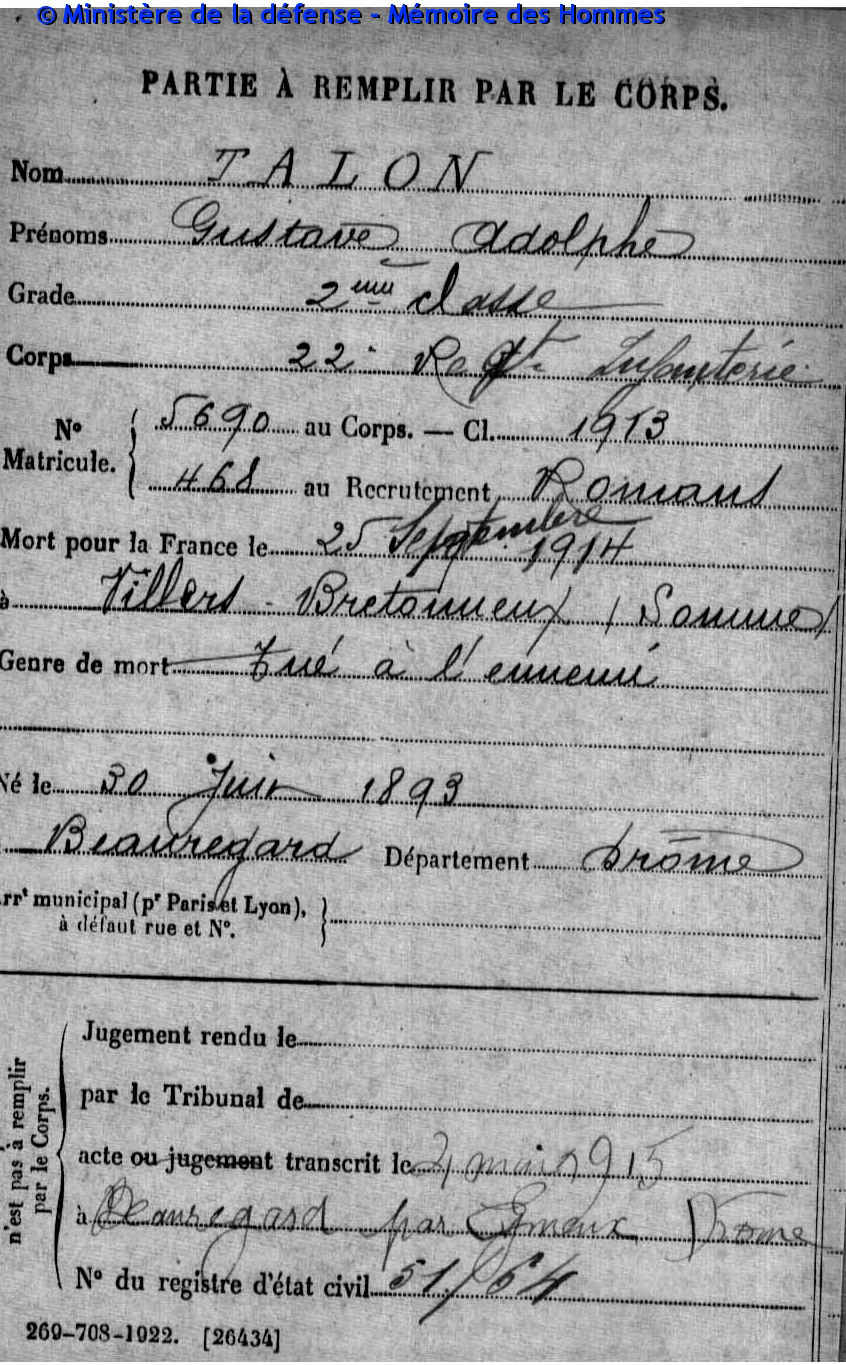 © Ministère de la défense - Mémoire des Hommes
PARTIE À REMPLIR PAR LE CORPS.
Nom TALON
Prénoms Gustave Adolphe
Grade 2ème classe
Corps 22e Regt Infanterie
N° Matricule. { 5690 au Corps. — Cl. 1913
468 au Recrutement Romans
Mort pour la France le 25 Septembre 1914
à Villers-Bretonneux (Somme)
Genre de mort Tué à l'ennemi
Né le 30 Juin 1893
Beauregard Département Drôme
arrt municipal (pr Paris et Lyon), }
à défaut rue et N°.
n'est pas à remplir
par le Corps.
Jugement rendu le
par le Tribunal de
acte ou jugement transcrit le mai 1915
à Beauregard par Eymeux Drôme
N° du registre d'état civil 51/64
269-708-1922. [26434]